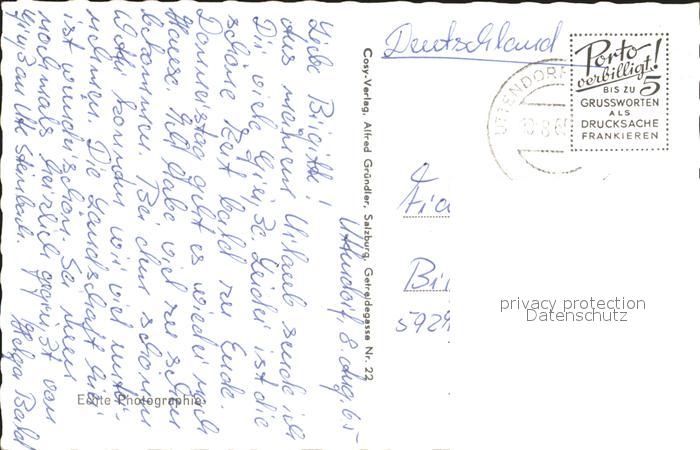 Uttendorf, 8. Aug. 65
Liebe Brigitte!
Aus meinem Urlaub sende ich
Dir viele Grüße. Leider ist die
schöne Zeit bald zu Ende.
Donnerstag geht es wieder nach
Hause. Ich habe viel zu sehen
bekommen. Bei dem schönen
Wetter konnten wir viel unter-
nehmen. Die Landschaft hier
ist wunderschön. Sei nun
nochmals herzlich gegrüßt von
Helga Bald
Cosy-Verlag, Alfred Gründler, Salzburg, Getreidegasse Nr. 22
Echte Photographie
Deutschland
UTTENDORF
Porto
verbilligt!
BIS ZU 5
GRUSSWORTEN
ALS
DRUCKSACHE
FRANKIEREN
592
privacy protection
Datenschutz